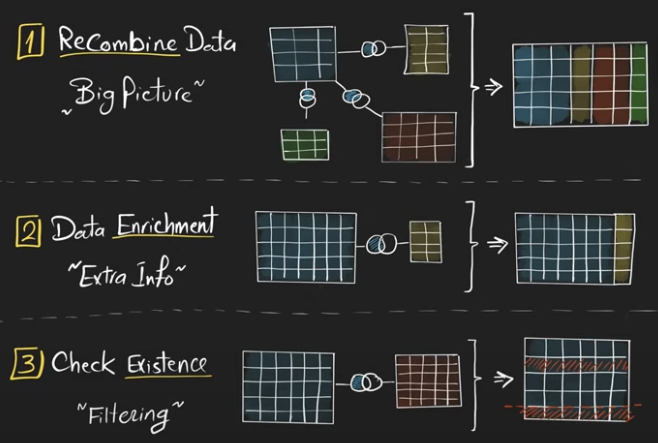 1 ReCombine Data
~Big Picture~
2 Data Enrichment
~Extra Info~
3 Check Existence
~Filtering~